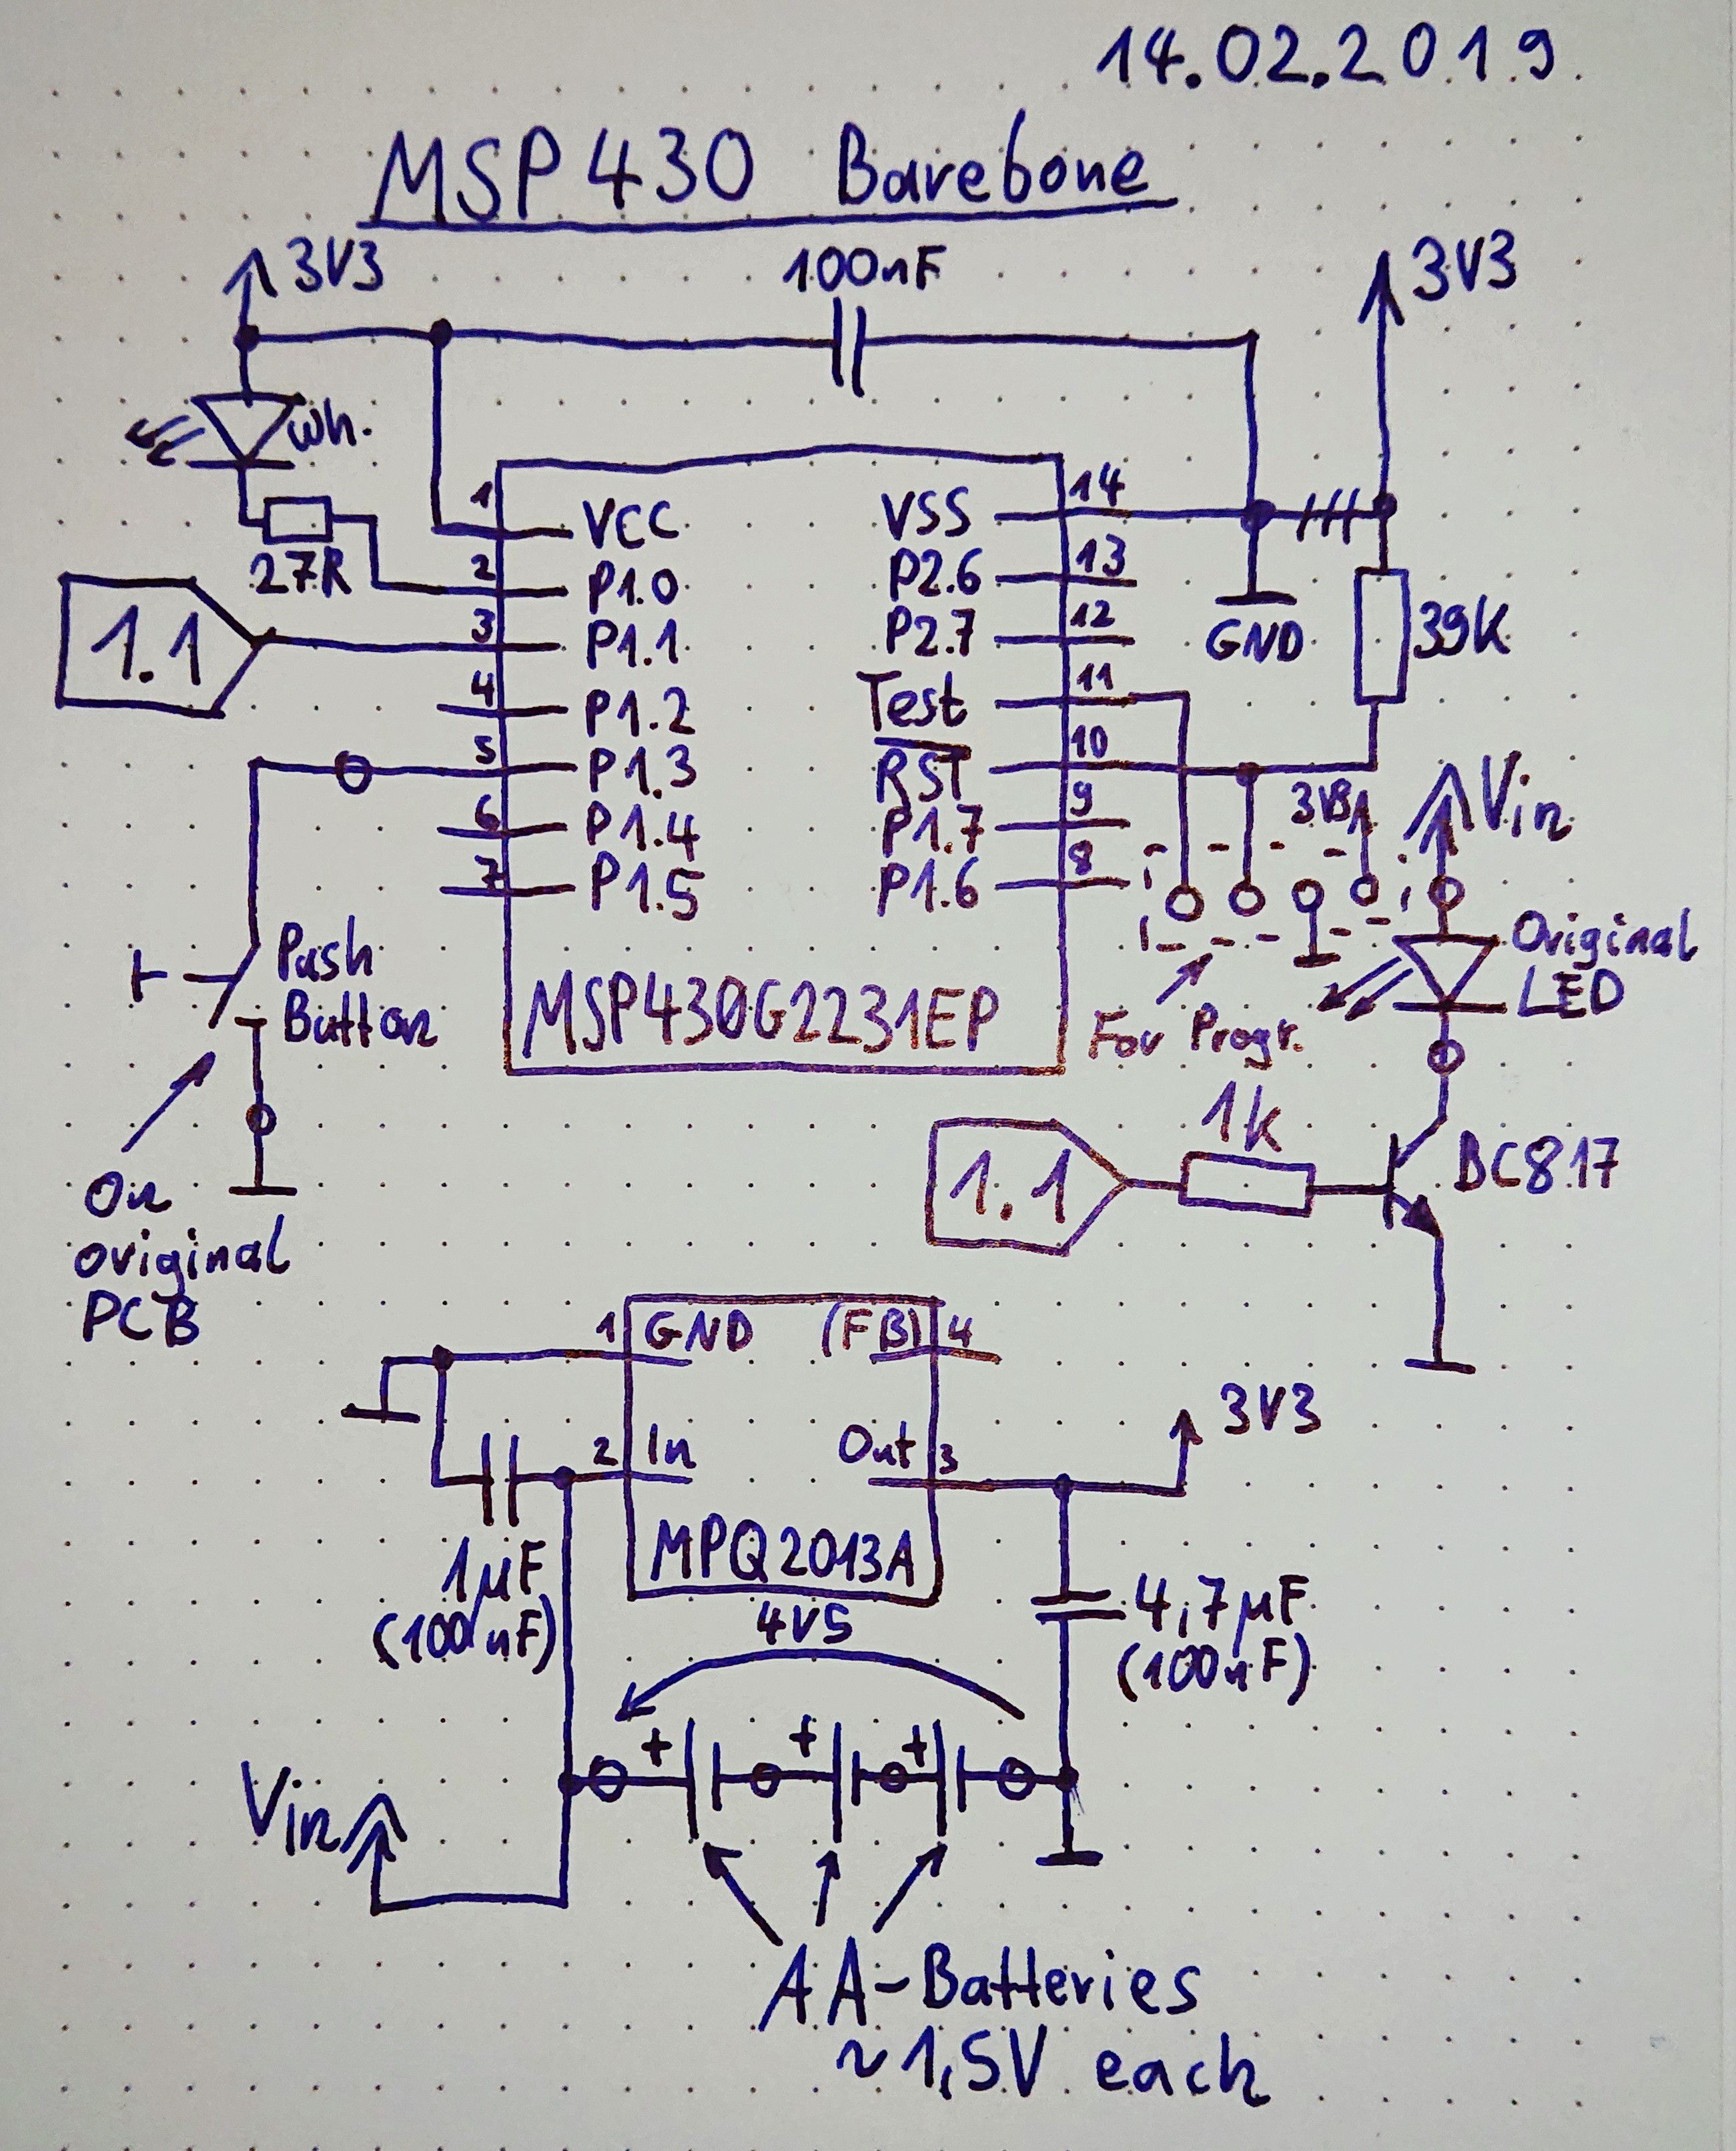 14.02.2019
MSP430 Barebone
3V3
100nF
3V3
wh.
27R
1.1
1
2
3
4
5
6
7
VCC
P1.0
P1.1
P1.2
P1.3
P1.4
P1.5
VSS
P2.6
P2.7
Test
RST
P1.7
P1.6
14
13
12
11
10
9
8
MSP430G2231EP
GND
39K
3V3
Vin
Original
LED
For Progr.
Push
Button
On
original
PCB
1.1
1k
BC817
1
GND
(FB)
4
2
In
Out
3
MPQ2013A
3V3
1µF
(100nF)
4,7µF
(100nF)
4V5
+
+
+
Vin
AA-Batteries
~1,5V each